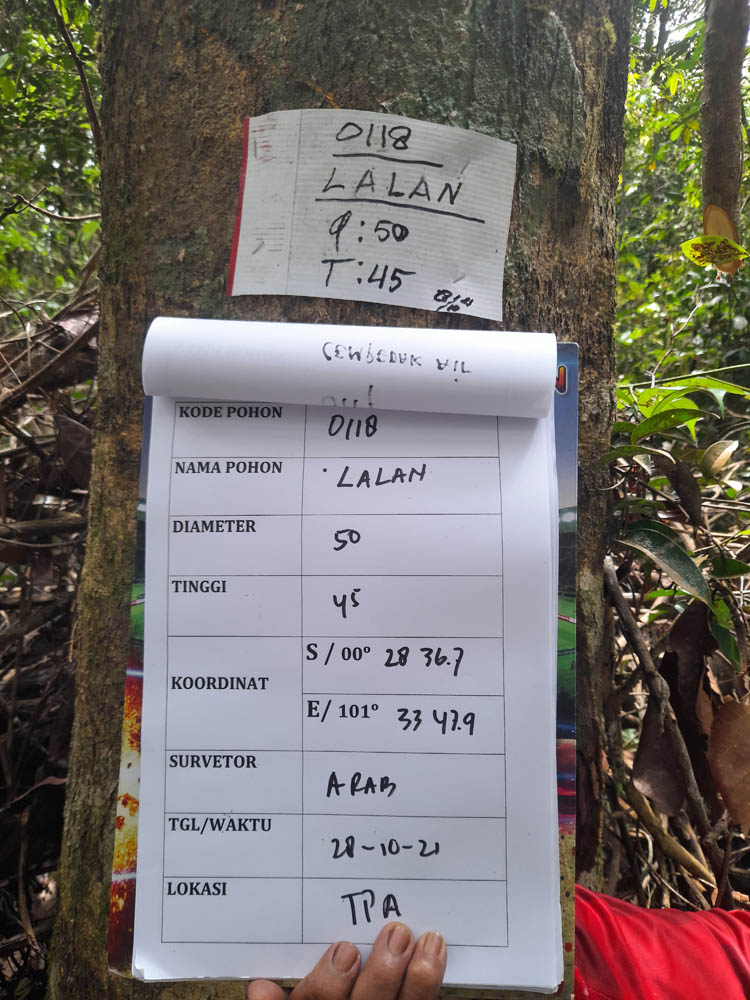 0118
LALAN
φ: 50
T: 45
CEMPEDAK AIL
KODE POHON 0118
NAMA POHON LALAN
DIAMETER 50
TINGGI 45
KOORDINAT
S / 00° 28 36.7
E/ 101° 33 47.9
SURVETOR ARAB
TGL/WAKTU 28-10-21
LOKASI TPA